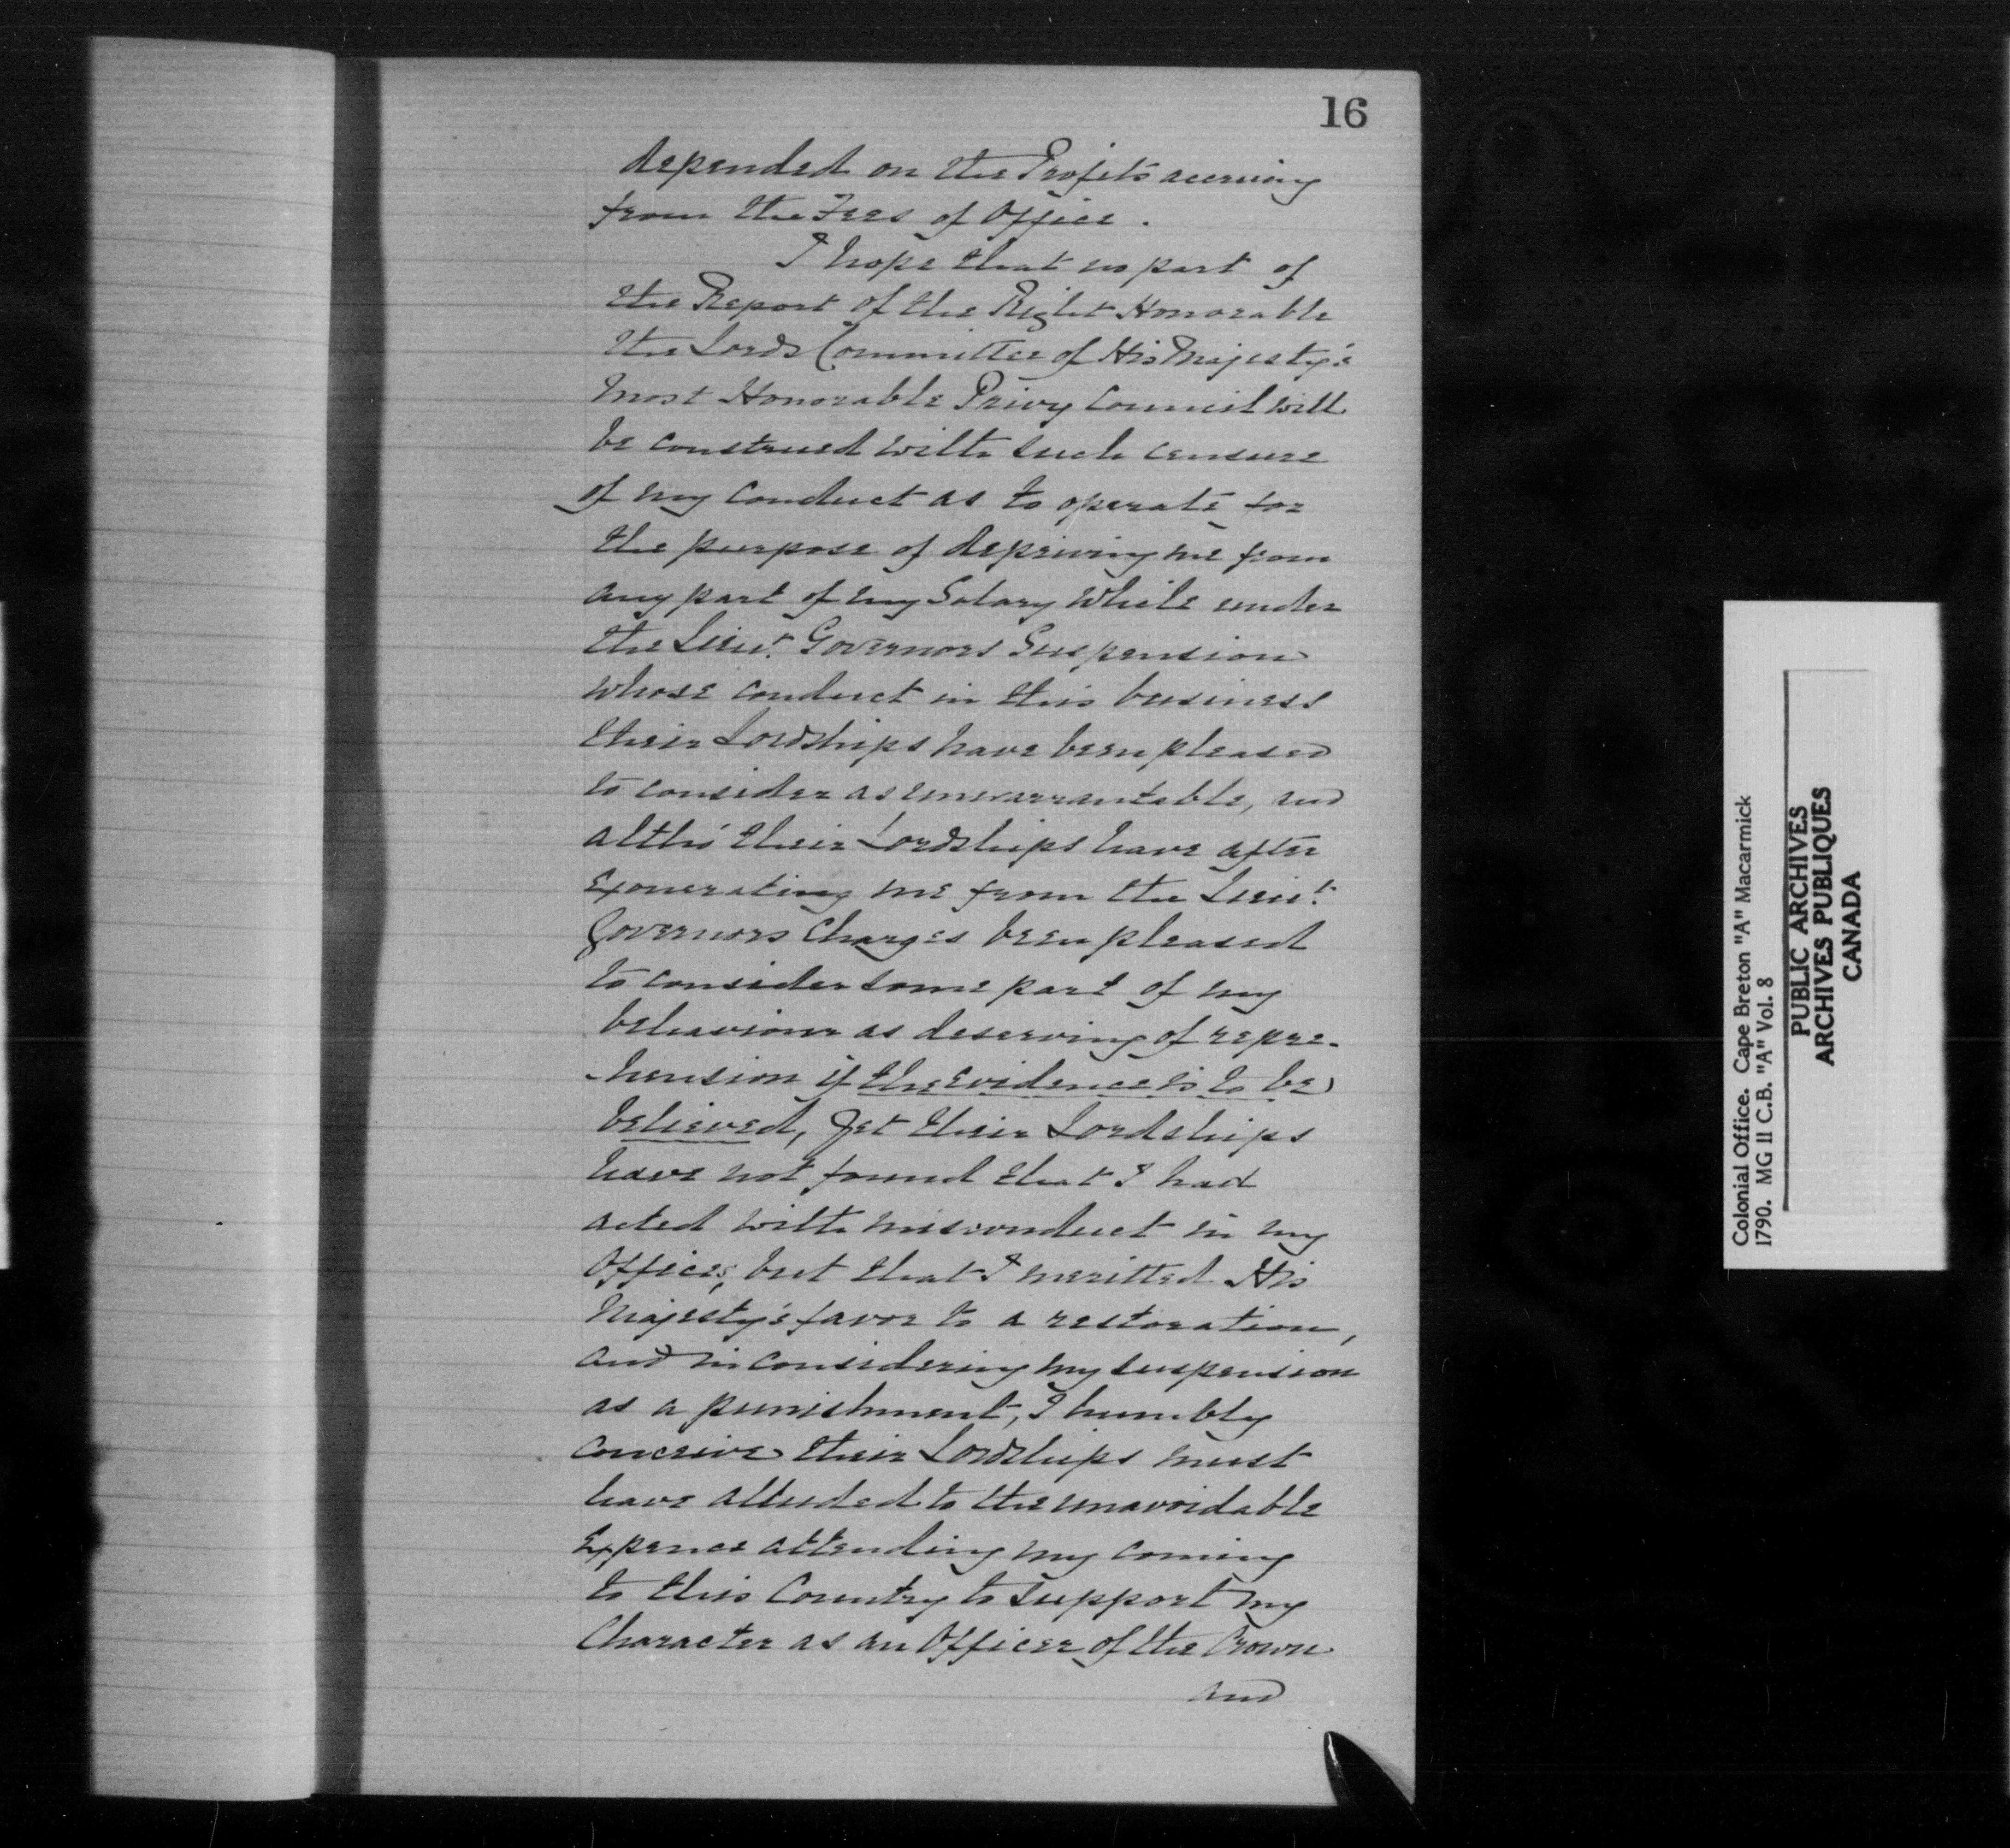 16
depended on the Profits accruing
from the Fees of Office.
I hope that no part of
the Report of the Right Honorable
the Lords Committee of His Majesty's
most Honorable Privy Council will
be construed with such censure
of my conduct as to operate for
the purpose of depriving me from
any part of my Salary while under
the Lieut. Governors Suspension
whose conduct in this business
their Lordships have been pleased
to consider as unwarrantable, and
altho' their Lordships have after
exonerating me from the Lieut.
Governors Charges been pleased
to consider some part of my
behaviour as deserving of repre-
-hension if the Evidence is to be
believed, yet their Lordships
have not found that I had
acted with misconduct in my
Offices, but that I meritted His
Majesty's favor to a restoration,
and in considering my suspension
as a punishment, I humbly
conceive their Lordships must
have alluded to the unavoidable
Expence attending my coming
to this Country to support my
Character as an Officer of the Crown
and
Colonial Office. Cape Breton "A" Macarmick
1790. MG 11 C.B. "A" Vol. 8
PUBLIC ARCHIVES
ARCHIVES PUBLIQUES
CANADA